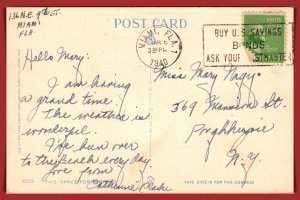 136 N.E. 9th ST.
MIAMI
FLA.
POST CARD
MIAMI, FLA.
MAR 6
3 PM
1948
BUY U.S. SAVINGS
BONDS
ASK YOUR POSTMASTER
Hello Mary:
I am having
a grand time.
The weather is
wonderful.
I've been over
to the beach every day.
Love from
Catherine
Miss Mary Nagy
369 Mansion St.
Poughkeepsie
N.Y.
THIS SPACE FOR
THIS SIDE IS FOR THE ADDRESS